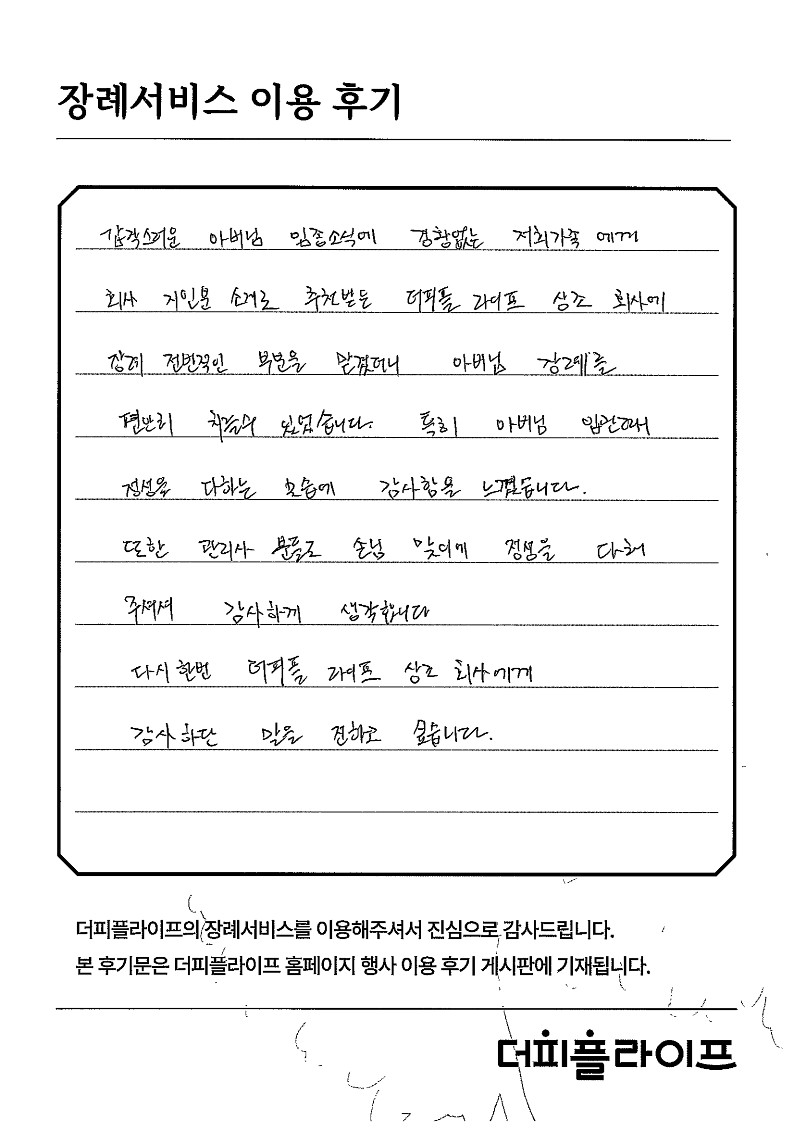 장례서비스 이용 후기
갑작스러운 아버님 임종소식에 경황없는 저희가족 에게
회사 지인분 소개로 추천받은 더피플 라이프 상조 회사에
장례 전반적인 부분을 맡겼더니 아버님 장례를
편안히 치를수 있었습니다. 특히 아버님 입관때
정성을 다하는 모습에 감사함을 느꼈습니다.
또한 관리사 분들도 손님 맞이에 정성을 다해
주셔서 감사하게 생각합니다
다시한번 더피플 라이프 상조 회사에게
감사하단 말을 전하고 싶습니다.
더피플라이프의 장례서비스를 이용해주셔서 진심으로 감사드립니다.
본 후기문은 더피플라이프 홈페이지 행사 이용 후기 게시판에 기재됩니다.
더피플라이프